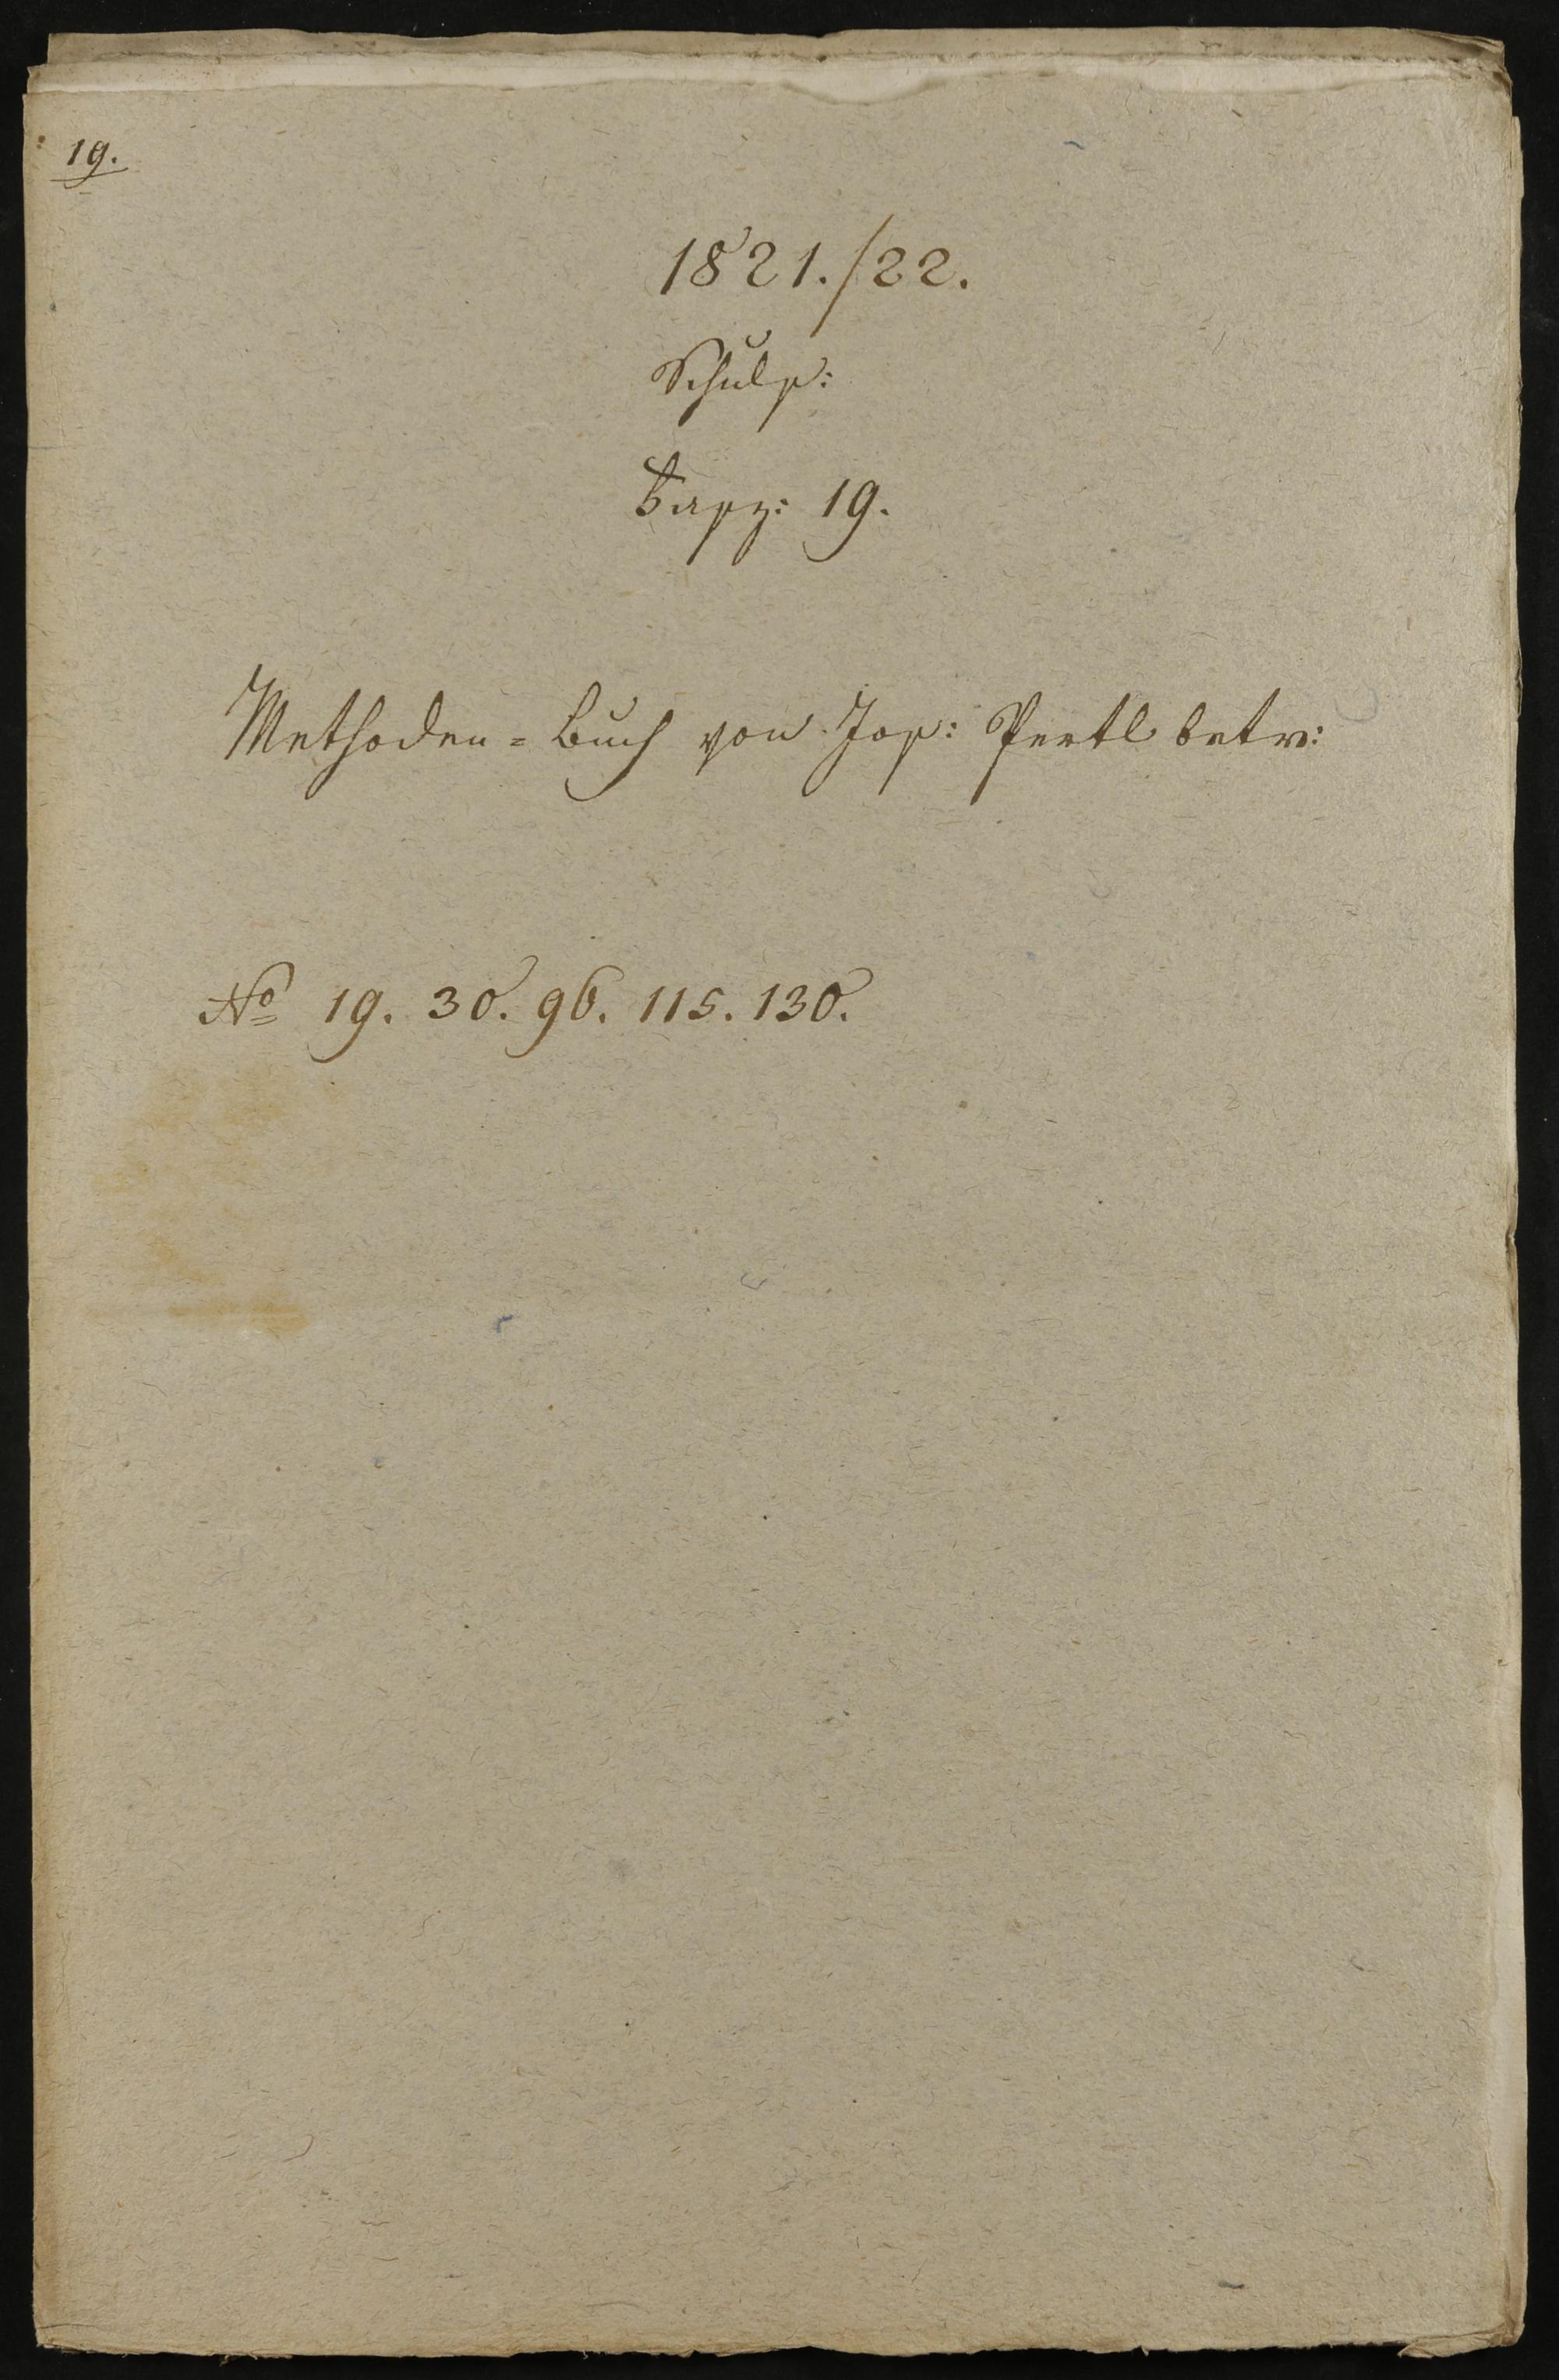 19.
1821./22.
Schuls:
Fasz: 19.
Methoden=Buch von Jos: Pertl betr:
No 19. 30. 96. 115. 130.